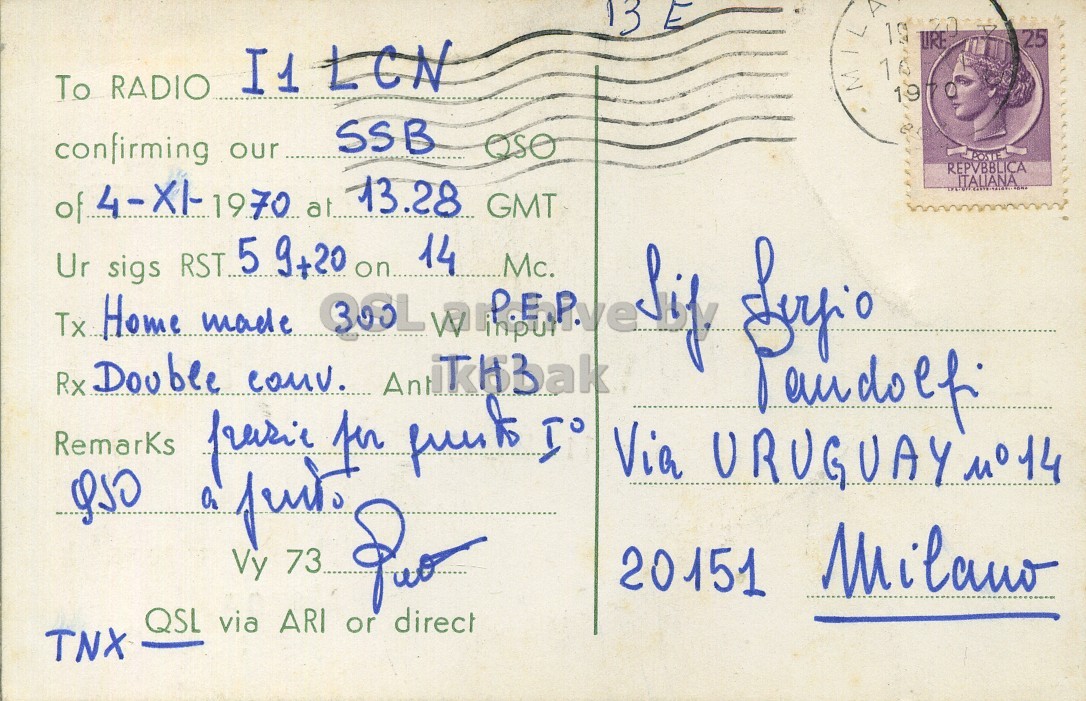 13 E
To RADIO I1 LCN
confirming our SSB QSO
of 4-XI-1970 at 13.28 GMT
Ur sigs RST 59+20 on 14 Mc.
Tx Home made 300 W input P.E.P.
Rx Double conv. Ant TH3
Remarks grazie per questo I°
QSO a presto
Vy 73
QSL via ARI or direct
TNX
MILA
1970
LIRE 25
POSTE
REPVBBLICA
ITALIANA
Sig. Sergio
Pandolfi
Via URUGUAY n° 14
20151 Milano
QSL archive by
ik6bak